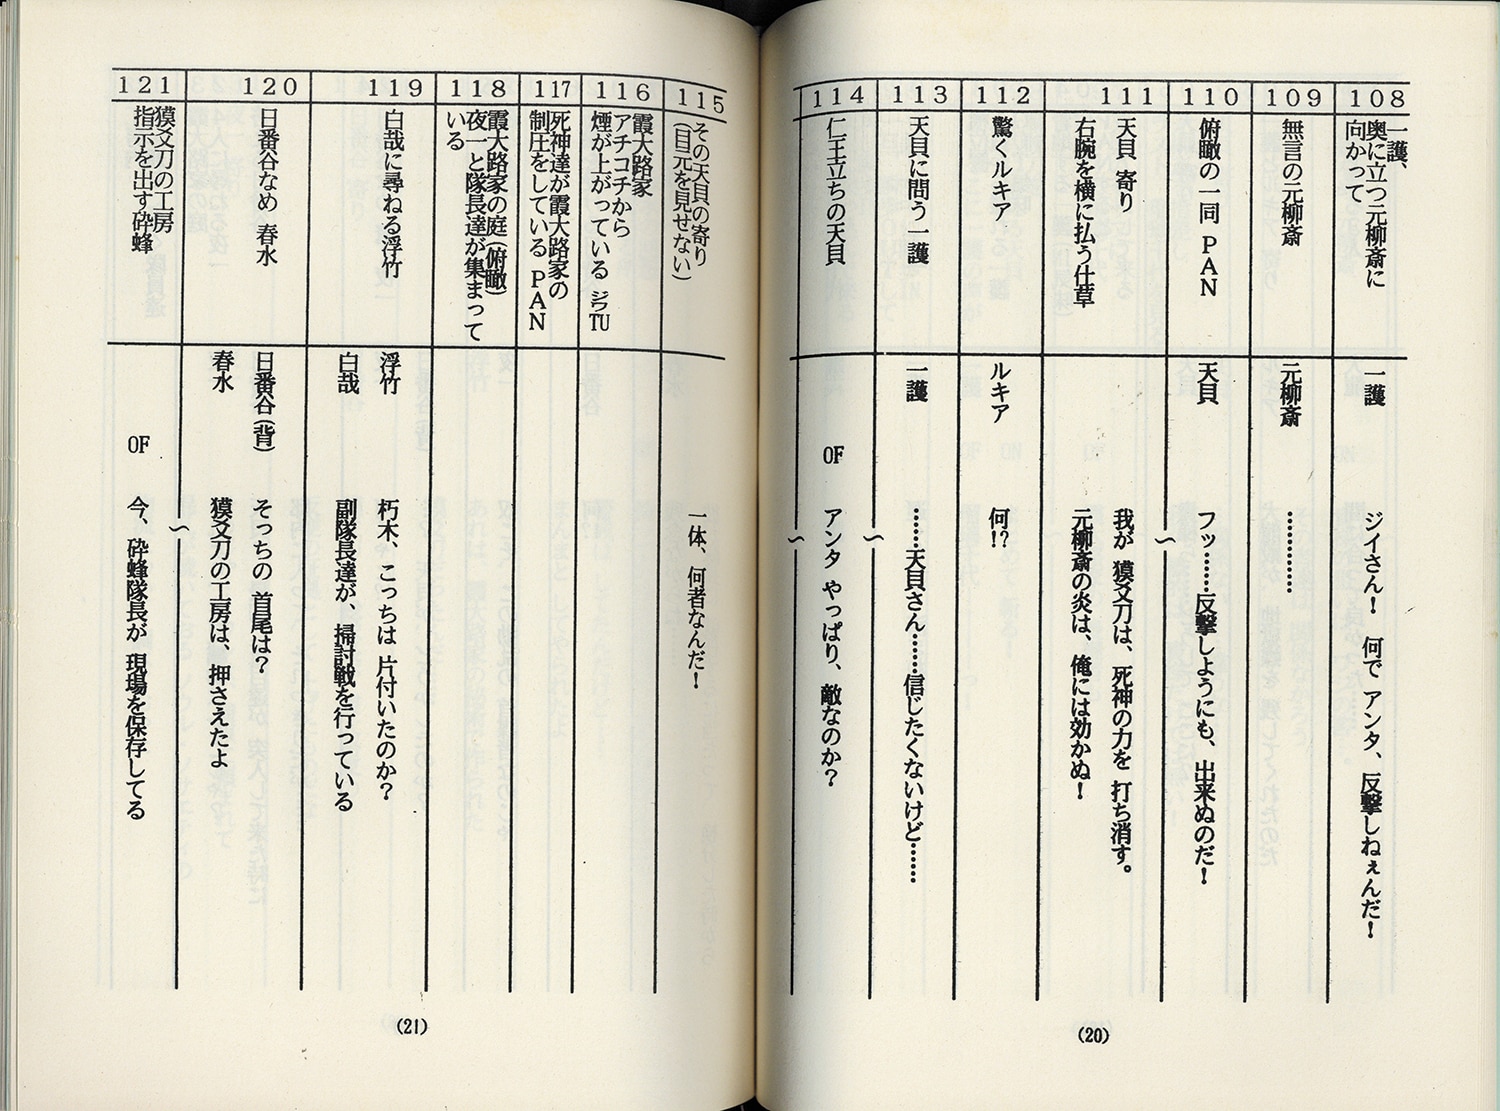 108
一護、
奥に立つ元柳斎に
向かって
一護
ジイさん！　何で アンタ、反撃しねぇんだ！
109
無言の元柳斎
元柳斎
…………
110
俯瞰の一同 ＰＡＮ
天貝
フッ……反撃しようにも、出来ぬのだ！
111
天貝 寄り
右腕を横に払う仕草
我が 獏爻刀は、死神の力を 打ち消す。
元柳斎の炎は、俺には効かぬ！
112
驚くルキア
ルキア
何!?
113
天貝に問う一護
一護
……天貝さん……信じたくないけど……
114
仁王立ちの天貝
OF
アンタ やっぱり、敵なのか？
(20)
115
その天貝の寄り
(目元を見せない)
一体、何者なんだ！
116
霞大路家
アチコチから
煙が上がっている ジワTU
117
死神達が霞大路家の
制圧をしている ＰＡＮ
118
霞大路家の庭(俯瞰)
夜一と隊長達が集まって
いる
119
白哉に尋ねる浮竹
浮竹
朽木、こっちは 片付いたのか？
白哉
副隊長達が、掃討戦を行っている
120
日番谷なめ 春水
日番谷(背)
そっちの 首尾は？
春水
獏爻刀の工房は、押さえたよ
121
獏爻刀の工房
指示を出す砕蜂
OF
今、砕蜂隊長が 現場を保存してる
(21)